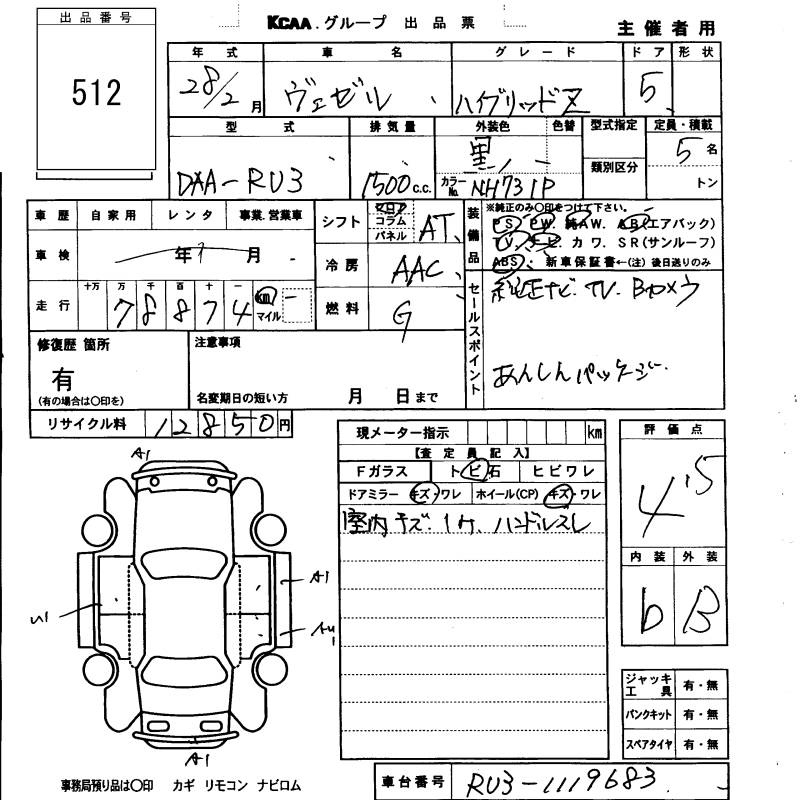 出品番号
512
KCAA.グループ 出品票
主催者用
年式 車名 グレード ドア 形状
28/2月 ヴェゼル ハイブリッドZ 5
型式 排気量 外装色 色替 型式指定 定員・積載
DAA-RU3 1500c.c. 黒 カラーNo. NH731P 類別区分 5名
トン
車歴 自家用 レンタ 事業.営業車
車検 年 月
走行 十万 万 千 百 十 一
78874 km マイル
シフト フロア コラム パネル AT
冷房 AAC
燃料 G
装備品
※純正のみ〇印をつけて下さい。
PS PW 純AW. AB(エアバック)
TV. ナビ. カワ. SR(サンルーフ)
ABS. 新車保証書←(注) 後日送りのみ
セールスポイント
純正ナビ.TV.Bカメラ
あんしんパッケージ.
修復歴 箇所
有
(有の場合は〇印を)
注意事項
名変期日の短い方 月 日まで
リサイクル料 12850円
現メーター指示 km
【査定員記入】
Fガラス トビ石 ヒビワレ
ドアミラー キズ・ワレ ホイール(CP) キズ・ワレ
室内キズ.1ケ.ハンドルスレ
評価点
4.5
内装 外装
b B
A1
A1
U1
A1
ジャッキ 工具 有・無
パンクキット 有・無
スペアタイヤ 有・無
事務局預り品は〇印 カギ リモコン ナビロム
車台番号 RU3-1119683